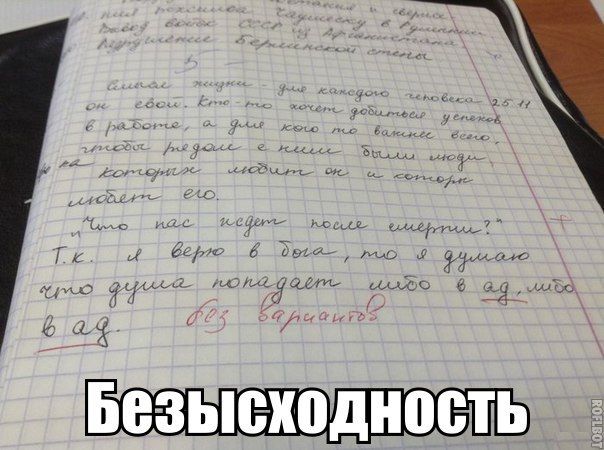 и сверже
ния режима Чаушеску в Румынии
Вывод войск СССР из Афганистана
Разрушение Берлинской стены
25.11
Смысл жизни - для каждого человека
он свой. Кто-то хочет добиться успехов
в работе, а для кого то важнее всего,
чтобы рядом с ним были люди,
которых любит он и которые
любят его.
"Что нас ждет после смерти?"
Т.к. я верю в бога, то я думаю
что душа попадает либо в ад, либо
в ад. без вариантов
Безысходность
ROFLBOT